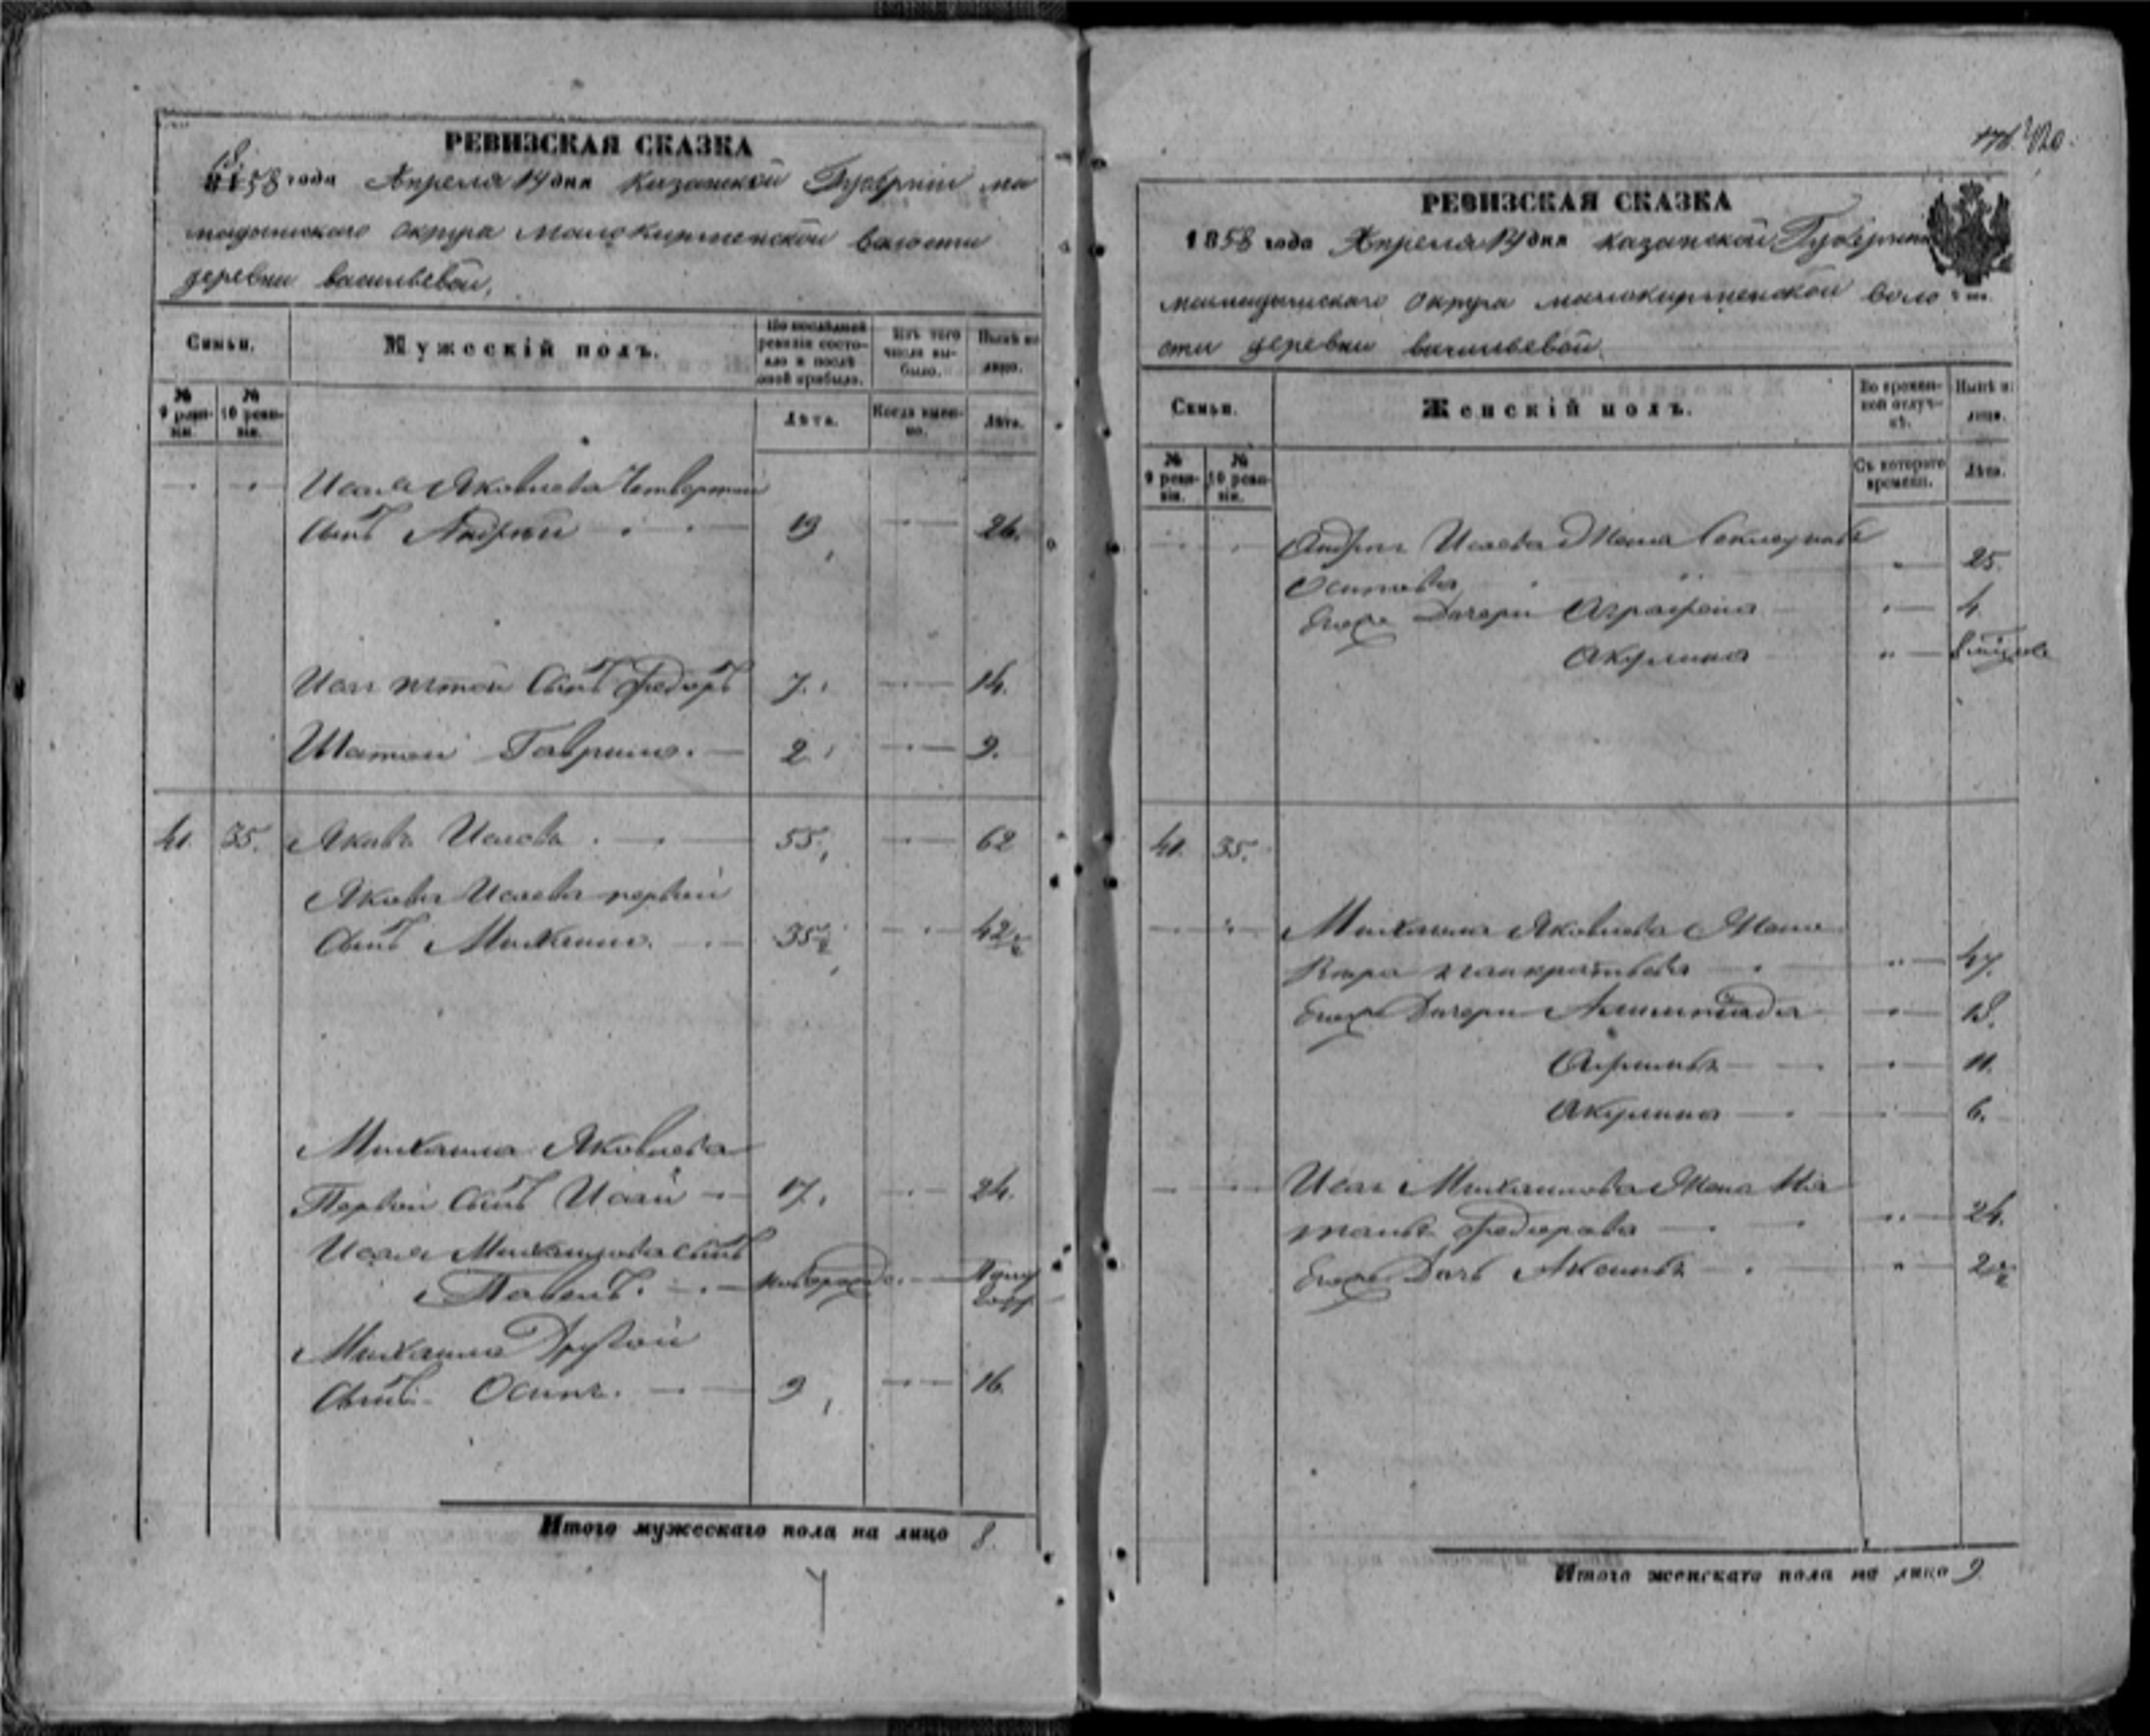 РЕВИЗСКАЯ СКАЗКА
1858 года Апреля 14 дня Казанской Губернии ма
мадышского округа малокирменской волости
деревни васильевой.
Семьи.
Мужескій полъ.
По последней ревизіи состояло и послѣ оной прибыло.
Изъ того числа выбыло.
Нынѣ на лицо.
№ 9 ревизіи.
№ 10 ревизіи.
Лѣта.
Когда именно.
Лѣта.
Исая Яковлева Четвертой
Сынъ Андрей 19 26.
Исая пятой Сынъ Федоръ 7. 14.
Шестой Гаврило. 2. 9.
41. 35. Яковъ Исаевъ 55. 62
Якова Исаева первой
Сынъ Михаило. 35½ 42½
Михаила Яковлева
Первой Сынъ Исай 17. 24.
Исая Михаилова сынъ
Павелъ. новорожд. Полу
году
Михаила Другой
Сынъ Осипъ. 9 16.
Итого мужескаго пола на лицо 8.
420.
РЕВИЗСКАЯ СКАЗКА
1858 года Апреля 14 дня казанской Губернии
мамадышскаго округа малокирменской воло
сти деревни васильевой.
Семьи.
Женскій полъ.
Во временной отлучкѣ.
Нынѣ на лицо.
№ 9 ревизіи.
№ 10 ревизіи.
Съ котораго времени.
Лѣта.
Андрея Исаева Жена
Осипова 25.
Дочери Аграфена 4.
Акулина
41. 35.
Михаила Яковлева Жена
Панкратьева 47.
Дочери 18.
11.
Акулина 6.
Исая Михаилова Жена Ма
Федорова 24.
Дочь Аксинья 2½
Итого женскаго пола на лицо 9